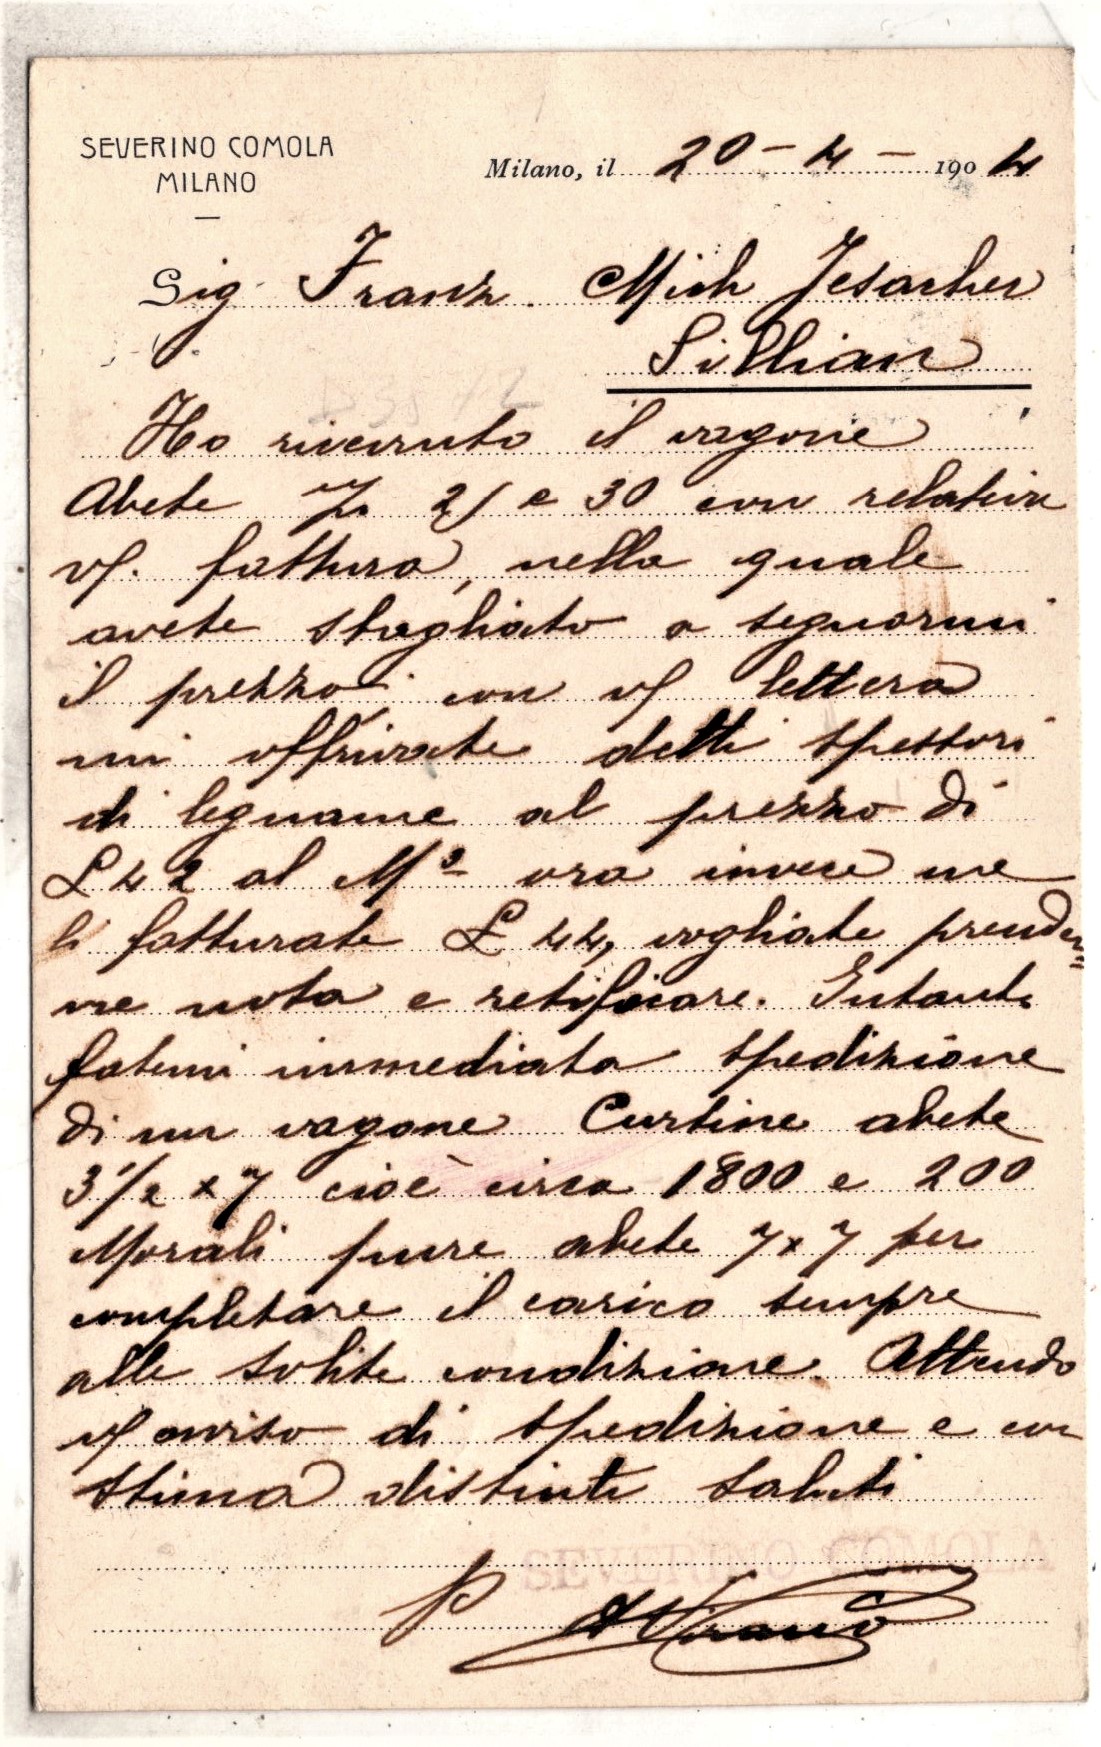 SEVERINO COMOLA
MILANO
Milano, il 20 - 4 - 1904
Sig. Franz Mich Jesacher
Sillian
Ho ricevuto il vagone
Abete e 30 con relativa
vs. fattura, nella quale
avete sbagliato a segnarmi
il prezzo; con vs lettera
mi offrivate detti spessori
di legname al prezzo di
L 42 al M³ ora invece me
li fatturate L 44, vogliate prender=
ne nota e retificare. Intanto
fatemi immediata spedizione
di un vagone Curtine abete
3 1/2 x 7 cioè circa 1800 e 200
Morali pure abete 7 x 7 per
completare il carico sempre
alle solite condizione. Attendo
vs avviso di spedizione e con
stima distinti saluti
SEVERINO COMOLA
P